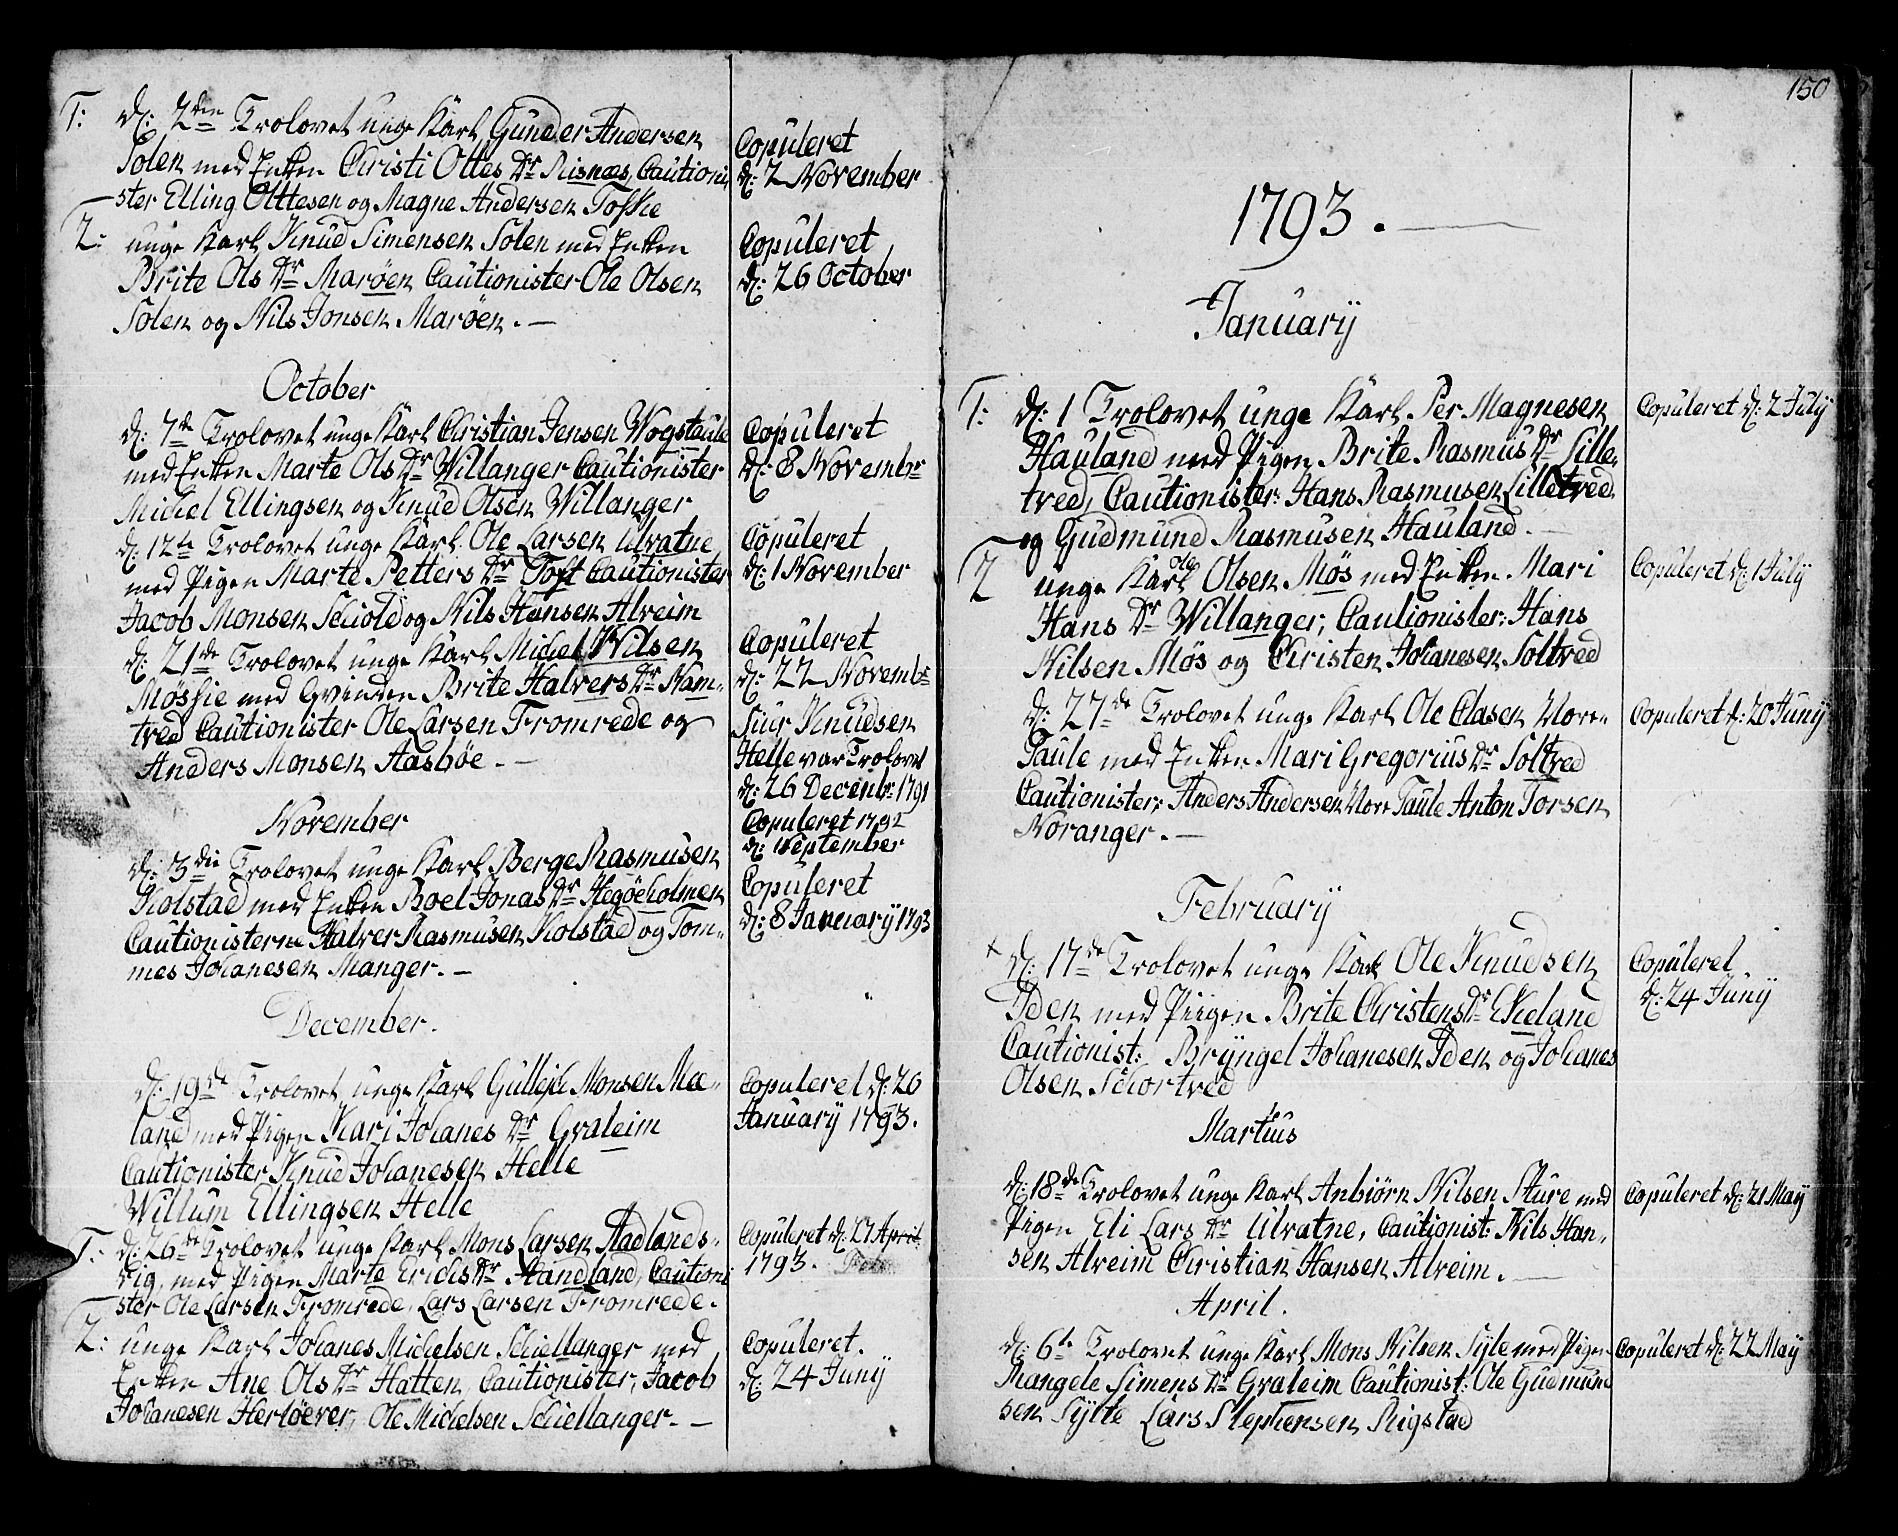 1: d: 2den Trolovet unge Karl Gunder Andersen
Solen med Enken Christi Ottes Dr Risnæs, Cautioni
ster Elling Ottesen og Magne Andersen Toskie
2: unge Karl Knud Simensen Solen med Enken
Brite Ols Dr Marøen Cautionister Ole Olsen
Solen og Nils Jonsen Marøen. —
October
d: 7de Trolovet unge Karl Christian Jensen Wogstaule
med Enken Marte Ols Dr Willanger Cautionister
Michel Ellingsen og Knud Olsen Willanger
d: 12te Trolovet unge Karl Ole Larsen Ulvatne
med Pigen Marte Petters Dr Toft Cautionister
Jacob Monsen Schiold og Nils Hansen Alreim
d: 21de Trolovet unge Karl Michel Nilsen
Møskie med Qvinden Brite Halvers Dr Nam-
tved Cautionister Ole Larsen Fromrede og
Anders Monsen Aasbøe. —
November
d: 3die Trolovet unge Karl Berge Rasmusen
Kolstad med Enken Boel Jonas Dr Hegøeholmen
Cautionisterne Halver Rasmusen Kolstad og Tom-
mes Johanesen Manger. —
December.
d: 19de Trolovet unge Karl Gulleich Monsen Mæ-
land med Pigen Kari Johanes Dr Qvaleim
Cautionister Knud Johanesen Helle
Willum Ellingsen Helle
1: d: 26de Trolovet unge Karl Mons Larsen Stadlands-
vig, med Pigen Marte Erichs Dr Standland, Cautioni
ster Ole Larsen Fromrede, Lars Larsen Fromrede.
2: unge Karl Johanes Michelsen Schiellanger med
Enken Ane Ols Dr Hatten, Cautionister, Jacob
Johanesen Herløever, Ole Michelsen Schiellanger. —
Copuleret
d: 2 November
Copuleret
d: 26 October
Copuleret
d: 8 Novembr
Copuleret
d: 1 November
Copuleret
d: 22 Novembr
Siur Knudsen
Helle var Trolovet
d: 26 Decembr 1791
Copuleret 1792
d: 1 September
Copuleret
d: 8 January 1793
Copuleret d: 26
January 1793.
Copuleret d: 21 April
1793.
Copuleret.
d: 24 Juny
150
1793. —
January
1: d: 1 Trolovet unge Karl Per Magnesen
Hauland med Pigen Brite Rasmus Dr Lille-
tved, Cautionister: Hans Rasmusen Lilletved
og Gudmund Rasmusen Hauland. —
2 unge Karl Ole Olsen Møs med Enken Mari
Hans Dr Willanger, Cautionister: Hans
Nilsen Møs og Christen Johanesen Soltved
d: 27de Trolovet unge Karl Ole Clasen Nore-
Taule med Enken Mari Gregorius Dr Soltved
Cautionister: Anders Andersen Nore Taule Anton Torsen
Noranger. —
February
x d: 17de Trolovet unge Karl Ole Knudsen
Iden med Piigen Brite Christens Dr Ekeland
Cautionist: Bryngel Johanesen Iden og Johanes
Olsen Schortved
Martius
d: 18de Trolovet unge Karl Anbiørn Nilsen Sture med
Pigen Eli Lars Dr Ulvatne, Cautionist: Nils Han-
sen Alreim Christian Hansen Alreim. —
April.
d: 6te Trolovet unge Karl Mons Nilsen Sylte med Pigen
Rangele Simens Dr Qvaleim Cautionist: Ole Gudmund
sen Sylte Lars Stephensen Rigstad
Copuleret d: 2 July
Copuleret d: 1 July
Copuleret d: 20 Juny
Copuleret
d: 24 Juny
Copuleret d: 21 May
Copuleret d: 22 May